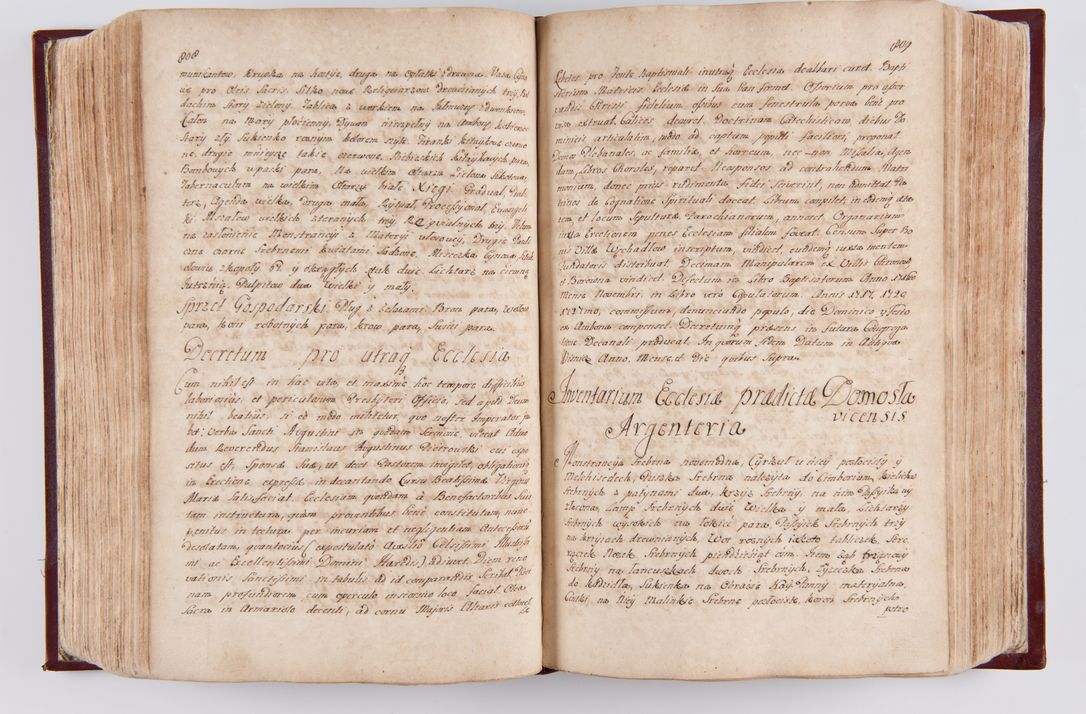 808
munikantow, Krupka na hostye, druga na Opłatki Zdrewna. Vasa Cyno
we pro Oleis Sacris. Sitko nowe Religiarzow Drewnianych trzy, Pod
dachim stary zielony. Tablica z workiem na Jałmużnę Zdzwonkiem,
Całon na Mary płocienny, Dywan na Ambonę, kobierzec
Stary zły Sukienko roznym kolorem szyte, Firanki kitaykowe czerwo
ne, drugie mnieysze takie czerwone, Niebieskich kitaykowych para,
w paski para, Na wielkim Ołtarzu Zielona
Tabernaculum na wielkim Ołtarzu białe. Xięgi Graduał, Psał
terz, Agenda wielka, druga mała, Rytuał, Processyonał, Ewangeli
ki Mszałow wielkich zderanych trzy, Requialnych trzy. Velum
na zasłonienie Monstrancyi z Materyi ulowey, Drugie
czarne Srebrnemi kwiatami Miseczka Cynowa
y okrągłych dwie Lichtarz na ciemną
Jutrznię. Pulpitow dwa Wielki y mały.
Sprzęt Gospodarski Pług z żelazami Bron para, Wołow
para, Koni robotnych para, krow para, Swini para.
Decretum pro utraq Ecclesia
Cum nihil est in hac vita, et maxime hoc tempore difficilius
laboriosius, et periculosius Presbyteri Officio, sed apud Deum
nihil beatius, si eo modo militetur, quo noster Imperator ju
bet: verba Sancti Augustini in quodam Sermone, viderat Admo
dum Reverendus Stanislaus Augustinus Piotrowski cui expo
situs est, Sponsæ Suæ, ut decet Pastorem invigilet, obligationi
in Erectione expressæ, in decantando Cursu Beatissimæ Virginis
Mariæ Satisfaciat. Ecclesiam quondam à Benefactoribus Suis
tam instructura, quàm proventibus bene constitutam, nunc
penitus in tectura per incuriam et negligentiam Antecessoris
desolatam, quantocius expostulato Auxilio Celsissimi Illustrissi
mi ac Excellentissimi Domini Hæredis, Diem reno
vationis Sanctissimi in tabulis ad id comparandis Scribat.
nam profundiorem cum operculo inscensio loco faciat. Olea
Sacra in Armariolo decenti, ad cornu Majoris Altaris collocet
809
Lebetes pro Fonte baptismali inutraq Ecclesia dealbari curet. Bapti
sterium Matricis Ecclesiæ in Sua Van formet. Osorium pro asser
vandis Christi fidelium ossibus cum fenestrula parva bene pro
visa extruat, Calices deauret. Doctrinam Catechisticam diebus Do
minicis articulatim, modo ad captum populi faciliori, proponat.
Domos Plebanales, ac familiæ et horreum, nec-non Missalia, Agen
dam, Libros Chorales, reparet. Neosponsos ad contrahendum Matri
monium, donec prius rudimenta Fidei sciverint, non admittat. Pa
trinos de Cognatione Spirituali doceat. Librum compilet, in eodemq æta
tem et locum Sepulturæ Parochianorum, annotet. Organarium
iuxta Erectionem penes Ecclesiam filialem foveat. Censum super Bo
nis Villæ Wychadlow inscriptum, vindicet, eundemq iuxta mentem
fundatoris distribuat. Decimam Manipularem ex Villis Chronow
et Borowna vindicet. Defectum in Libro Baptisatorum Anno
Mense Novembri, in Libro verò Copulatorum: Annis 1717, 1720
1727mo, commissum, denunciando populo, die Dominico
ex Ambona compenset. Decretumq præsens in futura Congrega
tione Decanali producat. In quorum fidem Datum in Antiqua
Vismicz Anno, Mense, et Die quibus Supra.
Inventarium Ecclesiæ prædictæ Domosła
vicensis
Argenteria
Monstrancyja Srebrna nowomodna, Cyrkuł u niey pozłocisty y
Melchisedech, Puszka Srebrna należyta do Cimborium, Kielichow
Srebrnych z patynami dwa, Krzyż Srebrny, na nim Passyika wy
złacana, Lamp Srebrnych dwie Wielka y mała, Lichtarzy
Srebrnych wysokich na łokieć para, Passyiek Srebrnych trzy
na krzyżach drewnianych, Wot roznych iakoto tabliczek, Serc
rączek Nozek Srebrnych pięcdziesiąt osm. Item
Srebrny na łancuszkach dwoch Srebrnych, Łyżeczka Srebrna
do kadzidła, Sukienka na Obrazie Nay: Panny materyalna,
Cętki na Niey Malinkie Srebrne pozłociste, koron Srebrnych
pstro